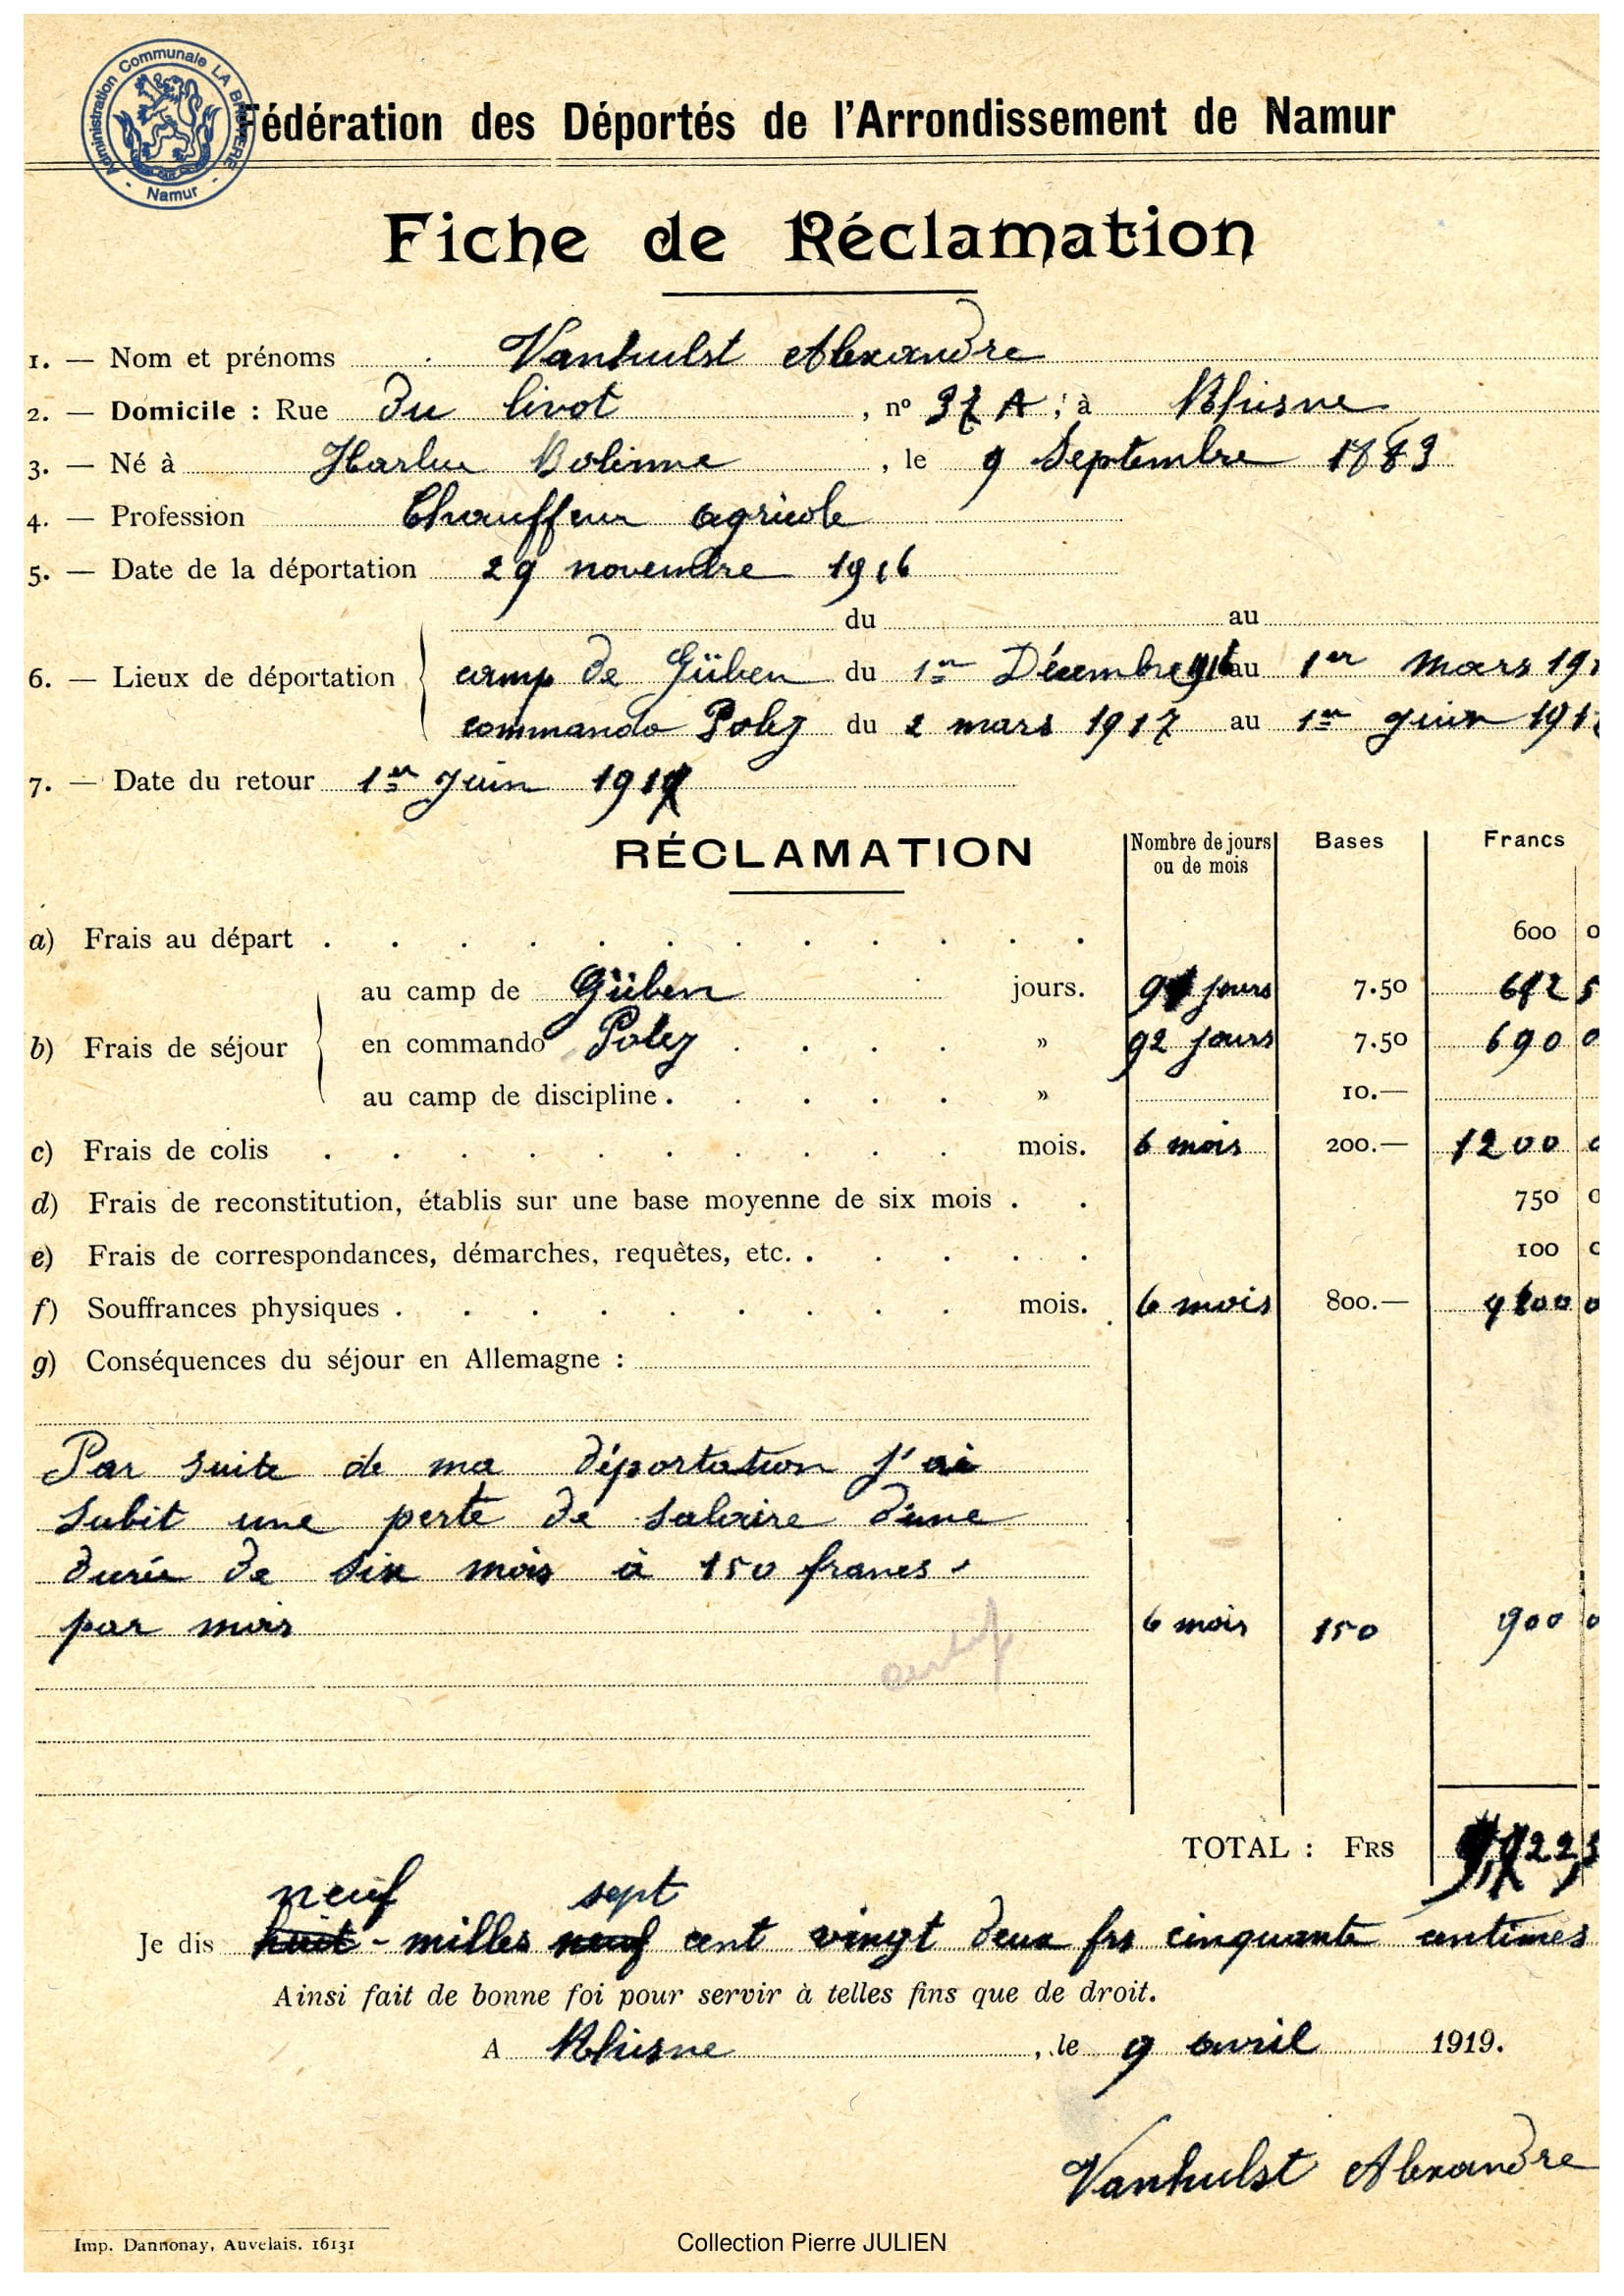 Administration Communale LA BRUYERE - Namur -
Fédération des Déportés de l'Arrondissement de Namur
Fiche de Réclamation
1. — Nom et prénoms Vanhulst Alexandre
2. — Domicile : Rue du livot, n° 37 A ; à Rhisne
3. — Né à Harlue Bolinne, le 9 Septembre 1883
4. — Profession Chauffeur agricole
5. — Date de la déportation 29 novembre 1916
du au
6. — Lieux de déportation camp de Güben du 1er Décembre 1916 au 1er mars 191
commando Polez du 2 mars 1917 au 1er juin 191
7. — Date du retour 1er Juin 1917
RÉCLAMATION Nombre de jours ou de mois Bases Francs
a) Frais au départ . . . 600 0
au camp de Güben jours. 91 jours 7.50 682 5
b) Frais de séjour en commando Polez . . . » 92 jours 7.50 690 0
au camp de discipline . . . » 10.—
c) Frais de colis . . . mois. 6 mois 200.— 1200 0
d) Frais de reconstitution, établis sur une base moyenne de six mois . . 750 0
e) Frais de correspondances, démarches, requètes, etc. . . . 100 0
f) Souffrances physiques . . . mois. 6 mois 800.— 4800 0
g) Conséquences du séjour en Allemagne :
Par suite de ma déportation j'ai
subit une perte de salaire d'une
durée de six mois à 150 francs
par mois 6 mois 150 900 0
TOTAL : FRS 9,722,5
neuf sept
Je dis huit - milles neuf cent vingt deux frs cinquante centimes
Ainsi fait de bonne foi pour servir à telles fins que de droit.
A Rhisne, le 9 avril 1919.
Vanhulst Alexandre
Imp. Dannonay, Auvelais. 16131
Collection Pierre JULIEN